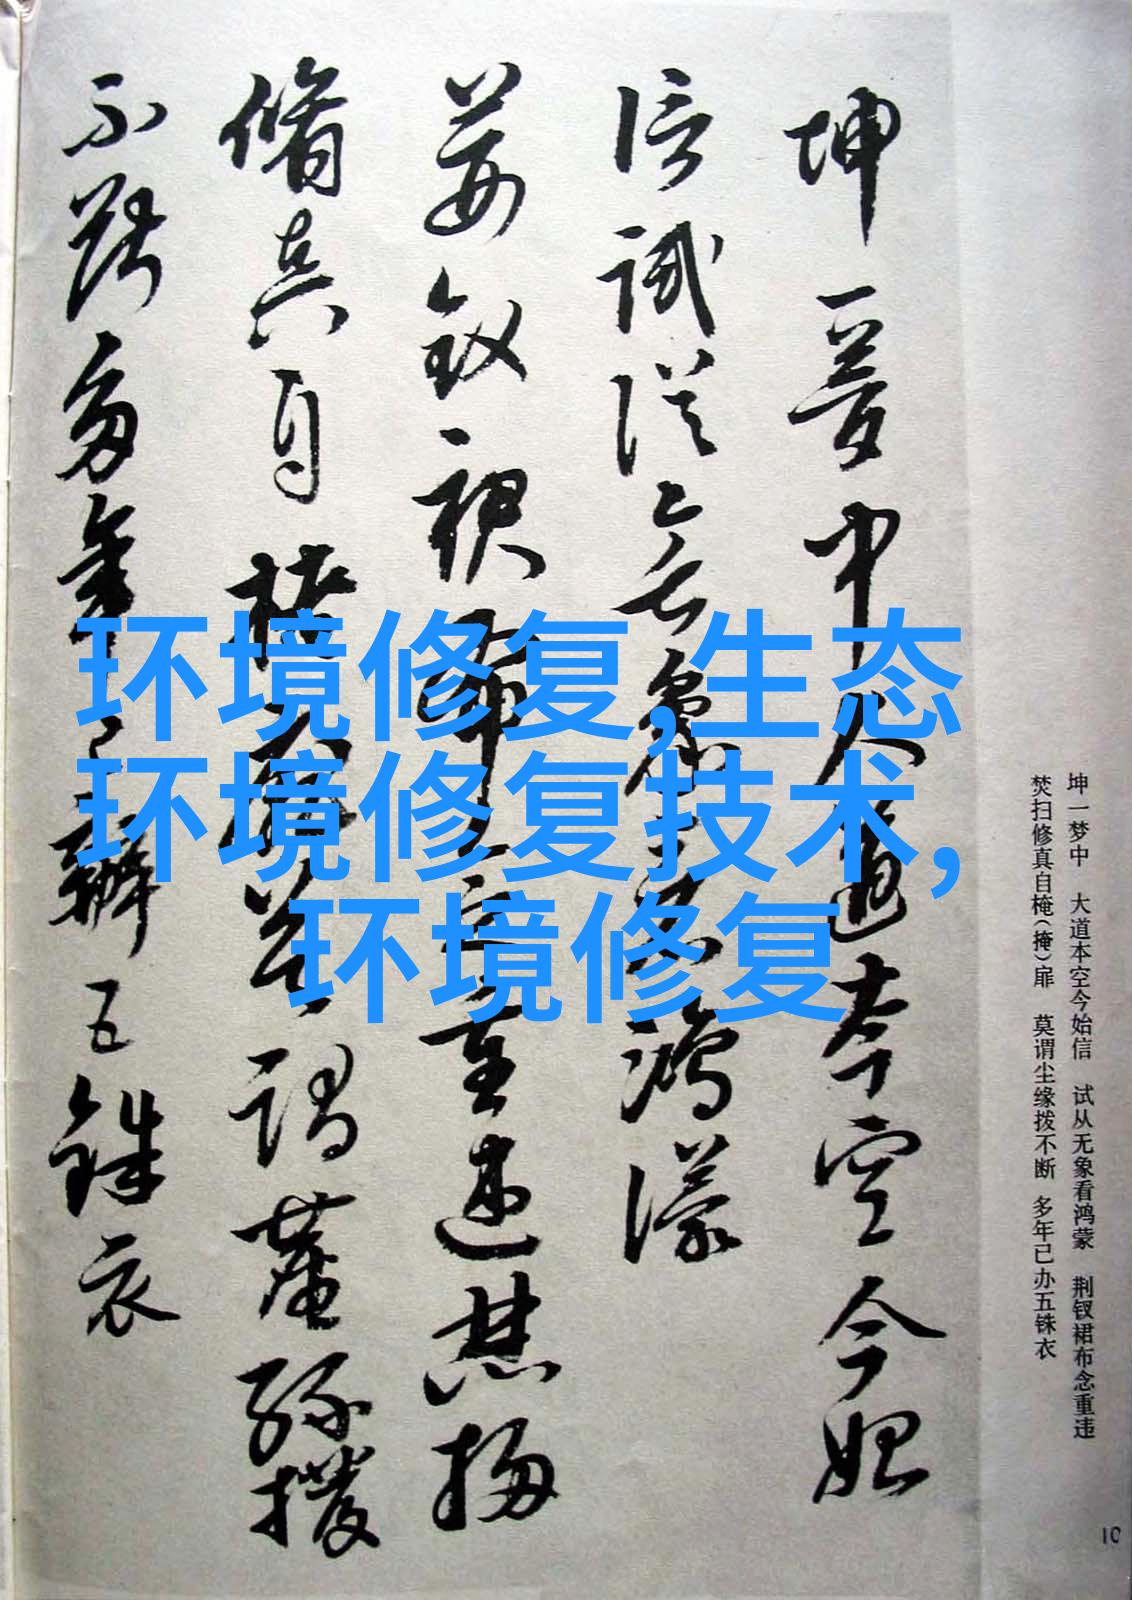 坤一夢中大道本空今始
信試從無象看鴻濛
荆釵裙布念重違焚掃
脩真自扉莫謂塵緣撥
不斷多年已辦五銖衣
环境修复,生态
环境修复技术,
环境修复
坤一梦中 大道本空今始信 试从无象看鸿蒙 荆钗裙布念重违
焚扫修真自(掩)扉 莫谓尘缘拨不断 多年已办五铢衣
10